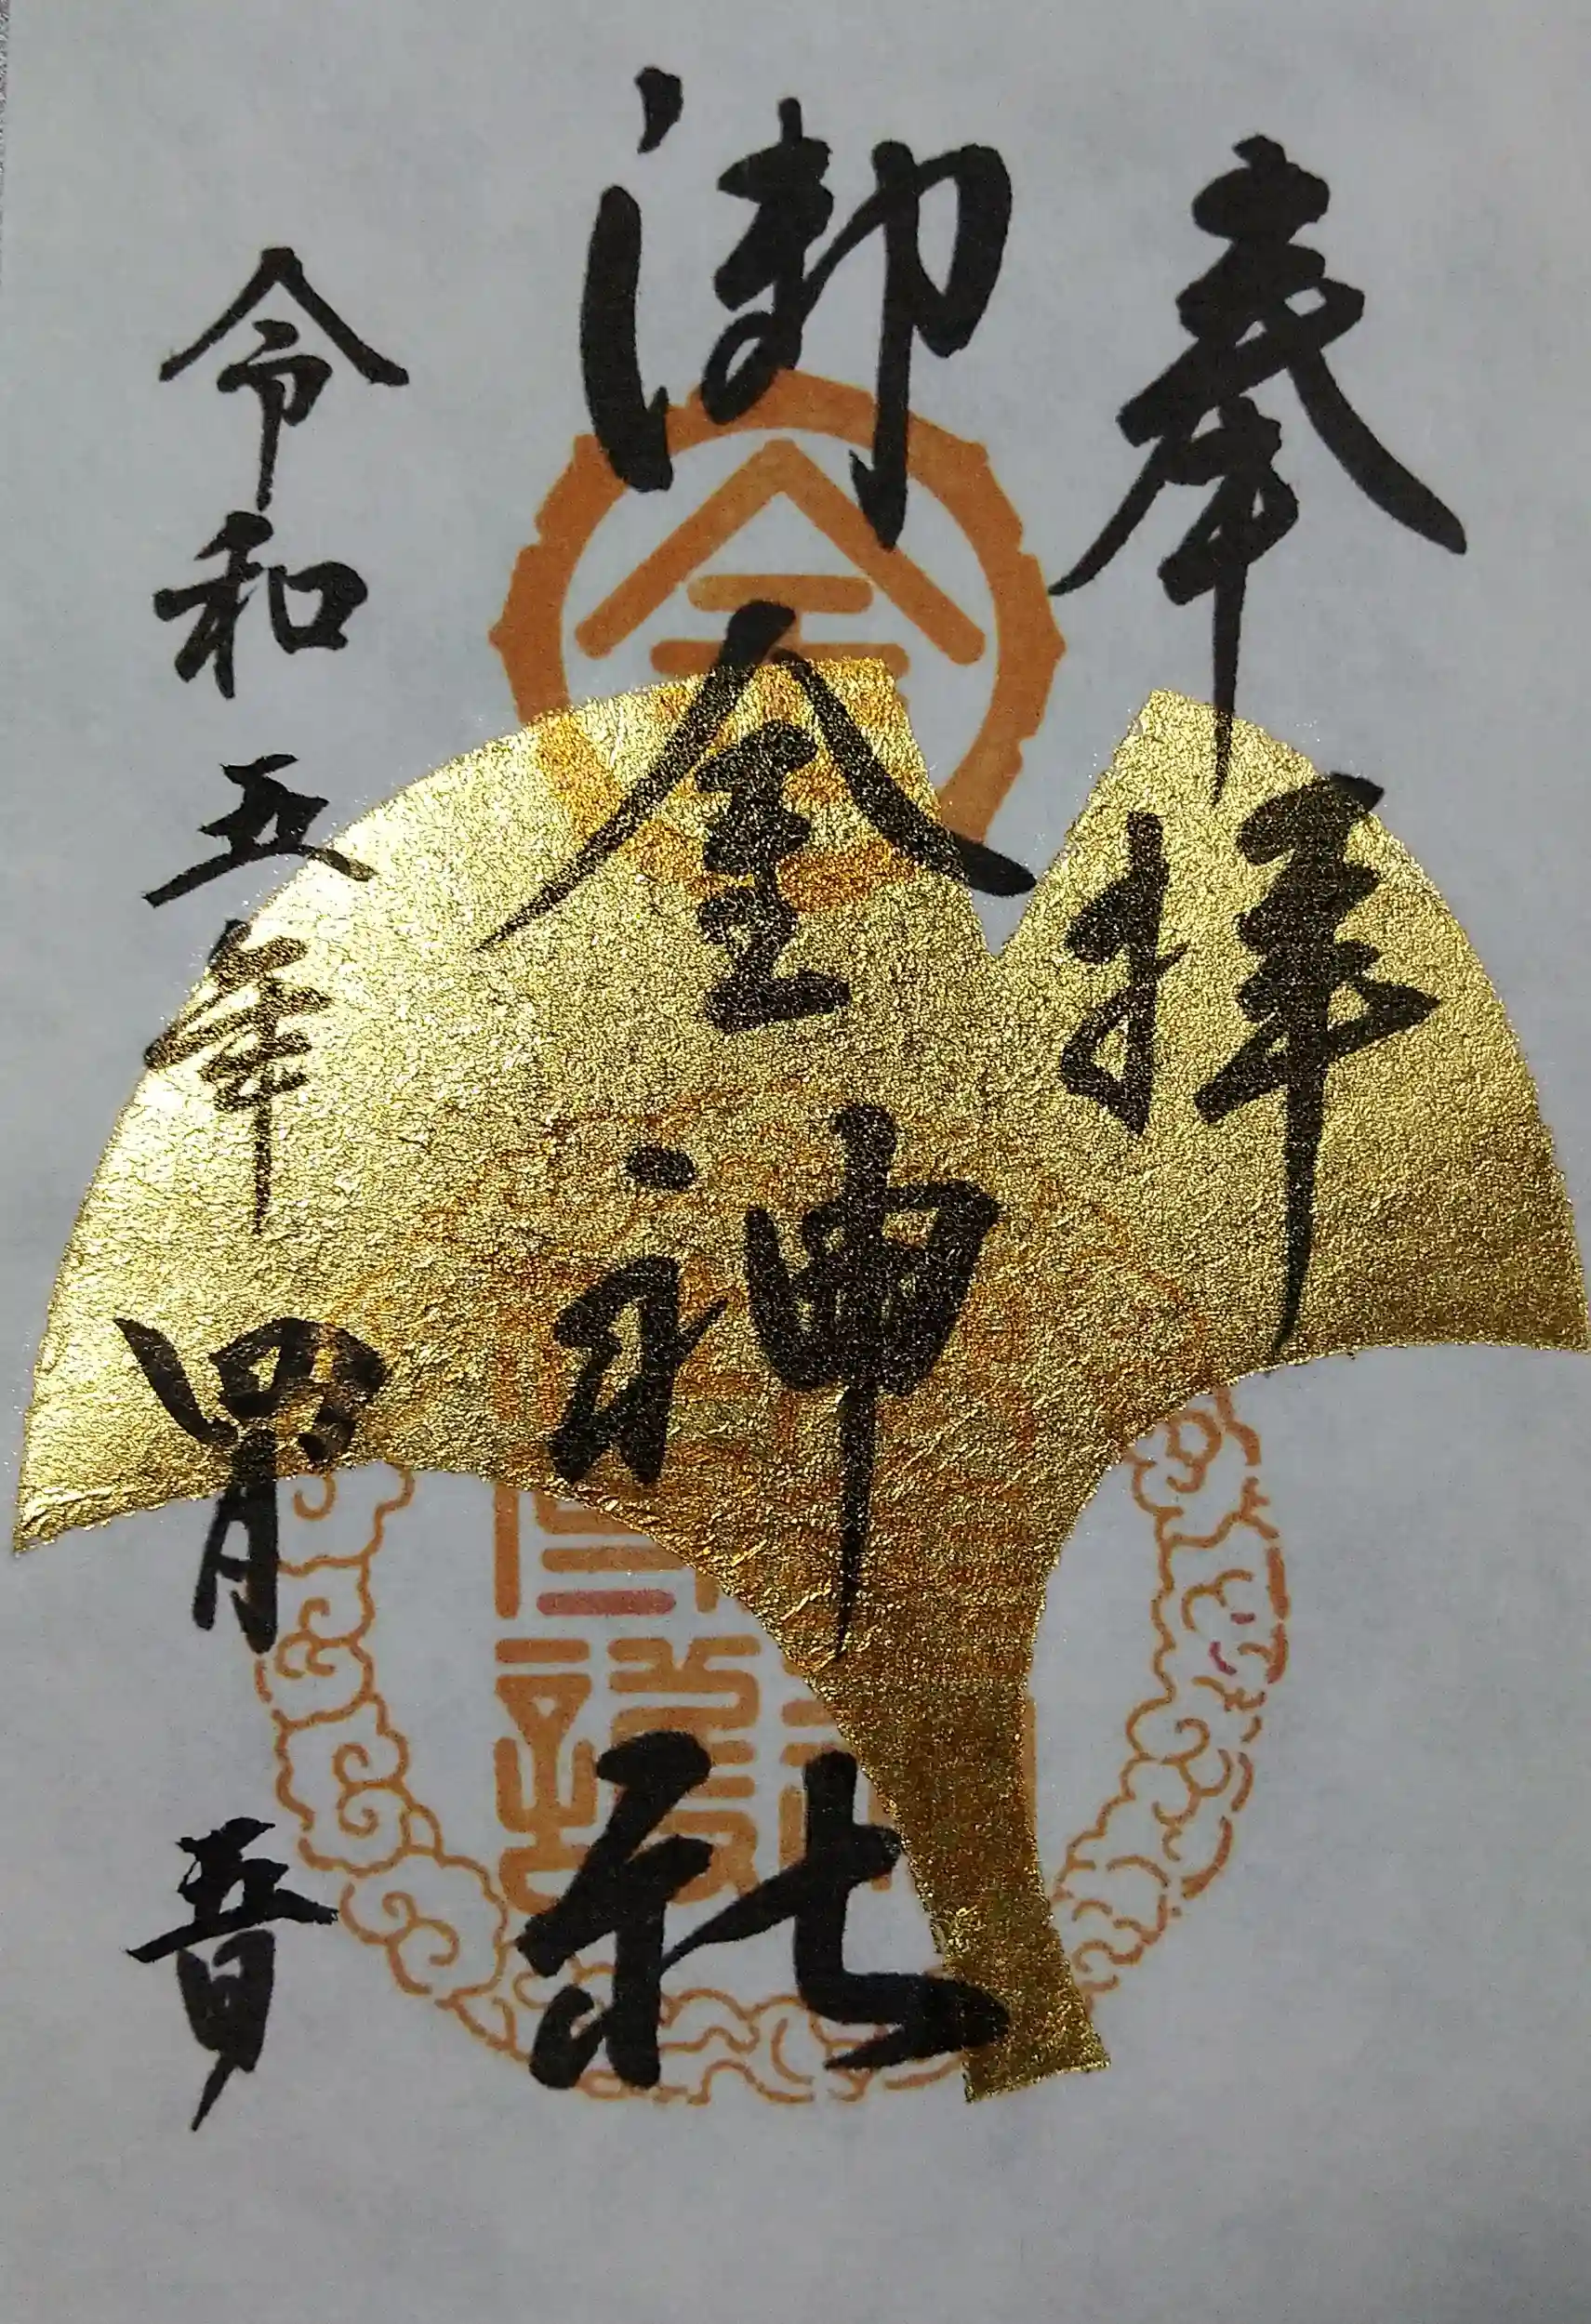 奉拝
御金神社
令和五年四月五日